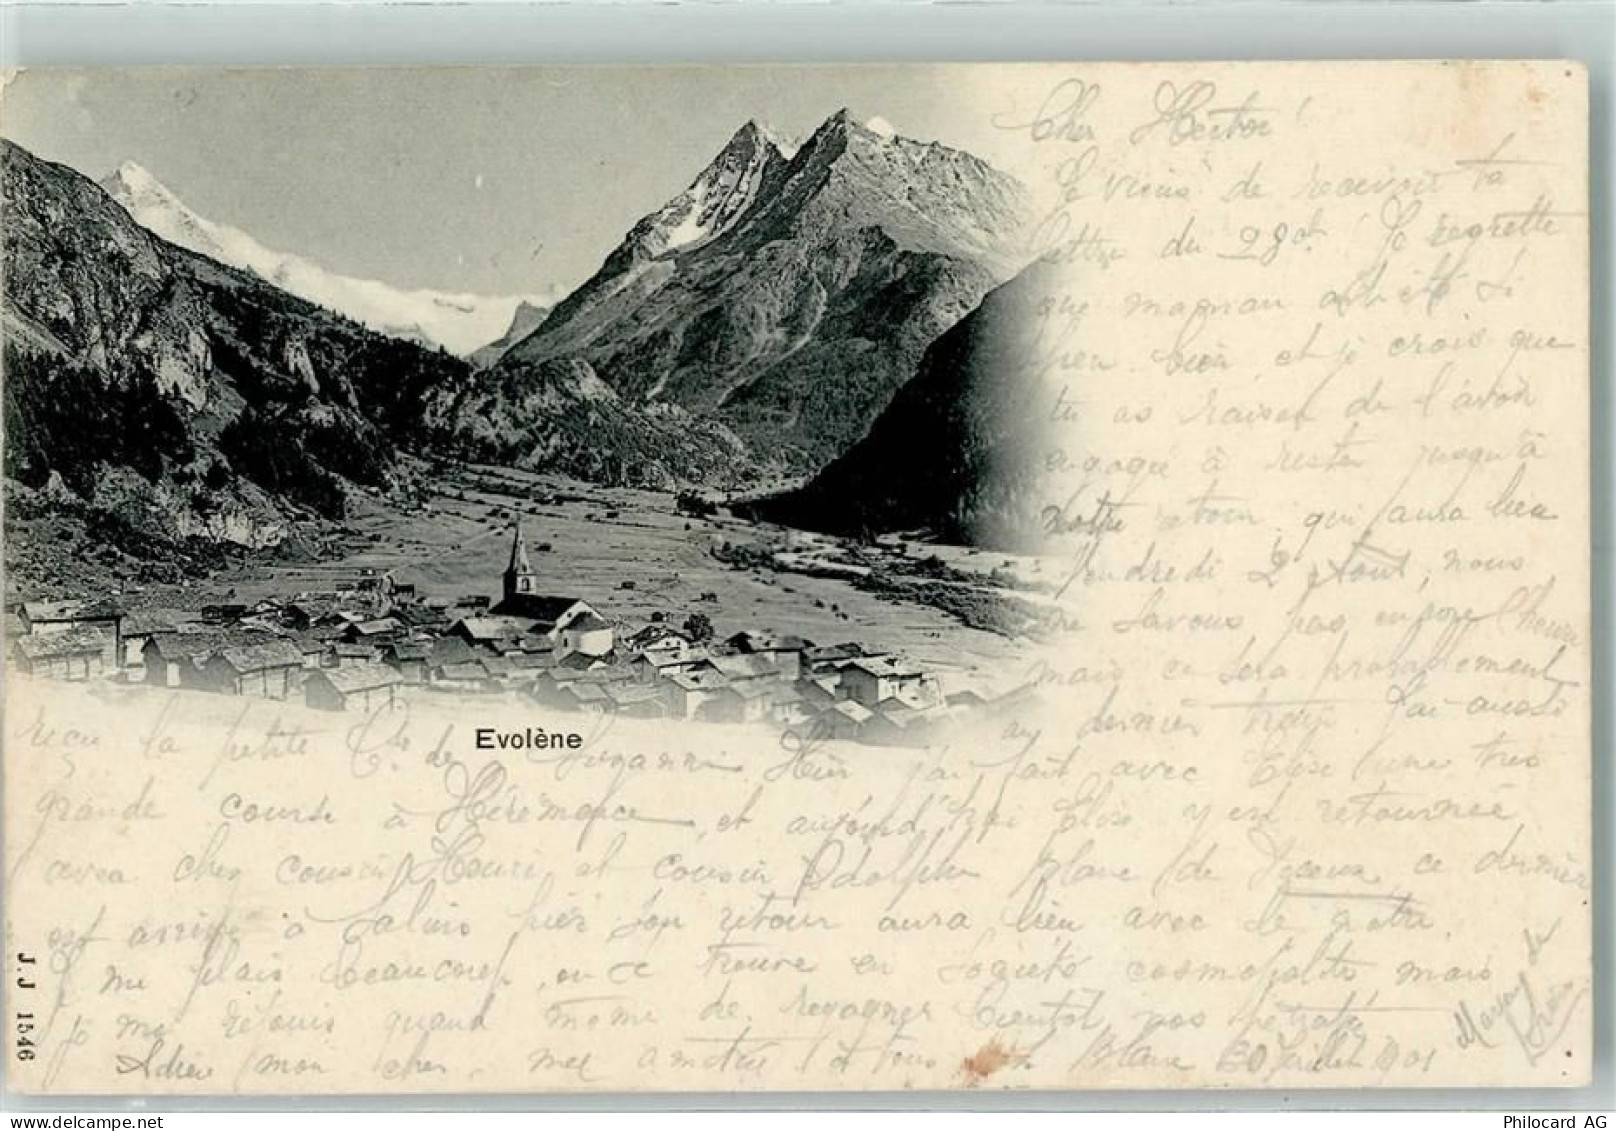 Cher Hector!
Je viens de recevoir ta
lettre du 28 ct Je regrette
que magnan ait été si
peu bien et je crois que
tu as raison de l'avoir
engagé à rester jusqu'à
notre retour, qui aura lieu
Vendredi 2 Août, nous
ne savons pas encore l'heure
mais ce sera probablement
au dernier train. J'ai aussi
reçu la petite Cte de Hier j'ai fait avec Elise une très
Evolène
grande course à Hérémence, et aujourd'hui Elise y est retournée
avec cher cousin Henri et cousin Adolphe Blanc de ce dernier
est arrivé à Salins hier son retour aura lieu avec le notre.
Il me plais beaucoup, on ce trouve en société cosmopolite mais
je me réjouis quand même de regagner bientôt nos pénates
Adieu mon cher, mes amitiés à tous Blanc 30 Juillet 1901
J.J 1546
Philocard AG